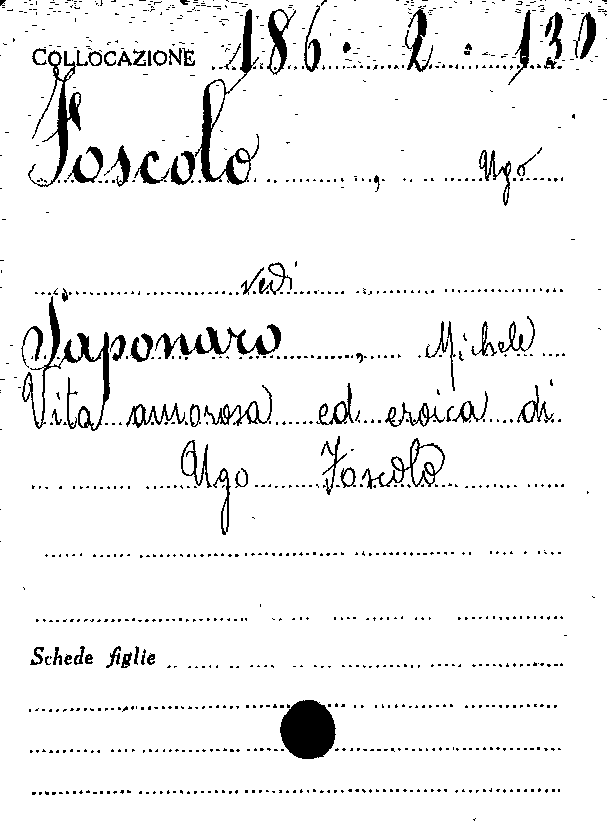 COLLOCAZIONE 186 . 2 . 130
Foscolo , Ugo
vedi
Saponaro , Michele
Vita amorosa ed eroica di
Ugo Foscolo
Schede figlie